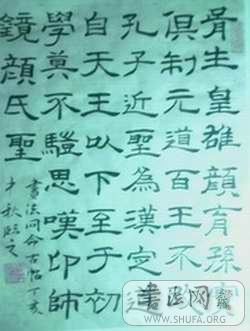 胥生皇雄顏育孫寶
俱制元道百王不
孔子近聖為漢定道
自天王以下至于初
學莫不驥思嘆卬師
鏡顏氏聖
古帖丁亥
書法网
WWW.SHUFA.ORG